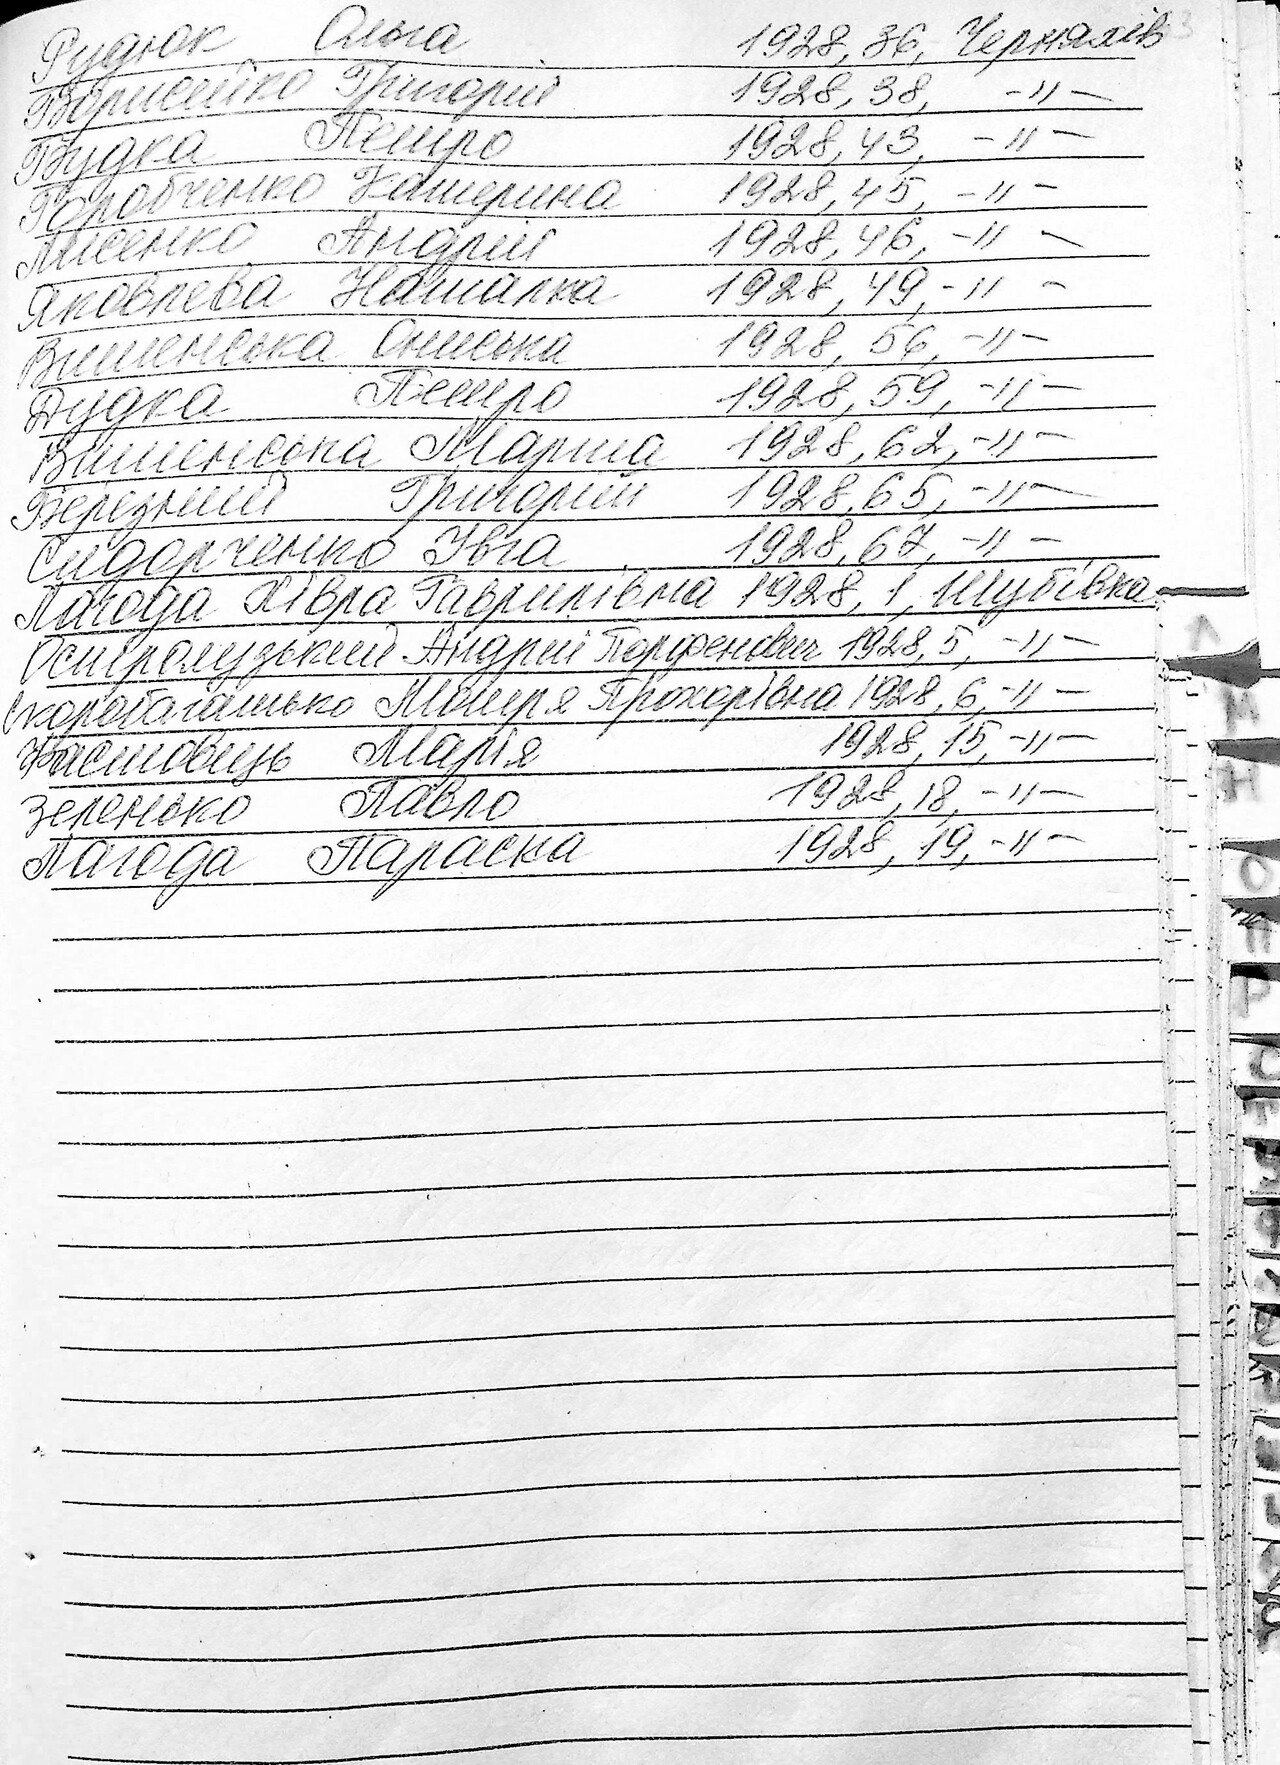 Рудюк Ольга 1928, 36, Черняхів
Борисейко Григорій 1928, 38, -"-
Будка Петро 1928, 43, -"-
Горобченко Катерина 1928, 45, -"-
Лисенко Андрій 1928, 46, -"-
Яковлева Наталка 1928, 49, -"-
Вишенська Ониська 1928, 56, -"-
Дудка Петро 1928, 59, -"-
Вишенська Марина 1928, 62, -"-
Березний Григорій 1928, 65, -"-
Сидорченко Ївга 1928, 67, -"-
Лагода Хівра Гаврилівна 1928, 1, Шубівка
Остролузький Андрій Порфенович 1928, 5, -"-
Скоробагатько Мотря Прохорівна 1928, 6, -"-
Хастовець Марія 1928, 15, -"-
Зеленько Павло 1928, 18, -"-
Лагода Параска 1928, 19, -"-
Л
М
Н
О
П
Р